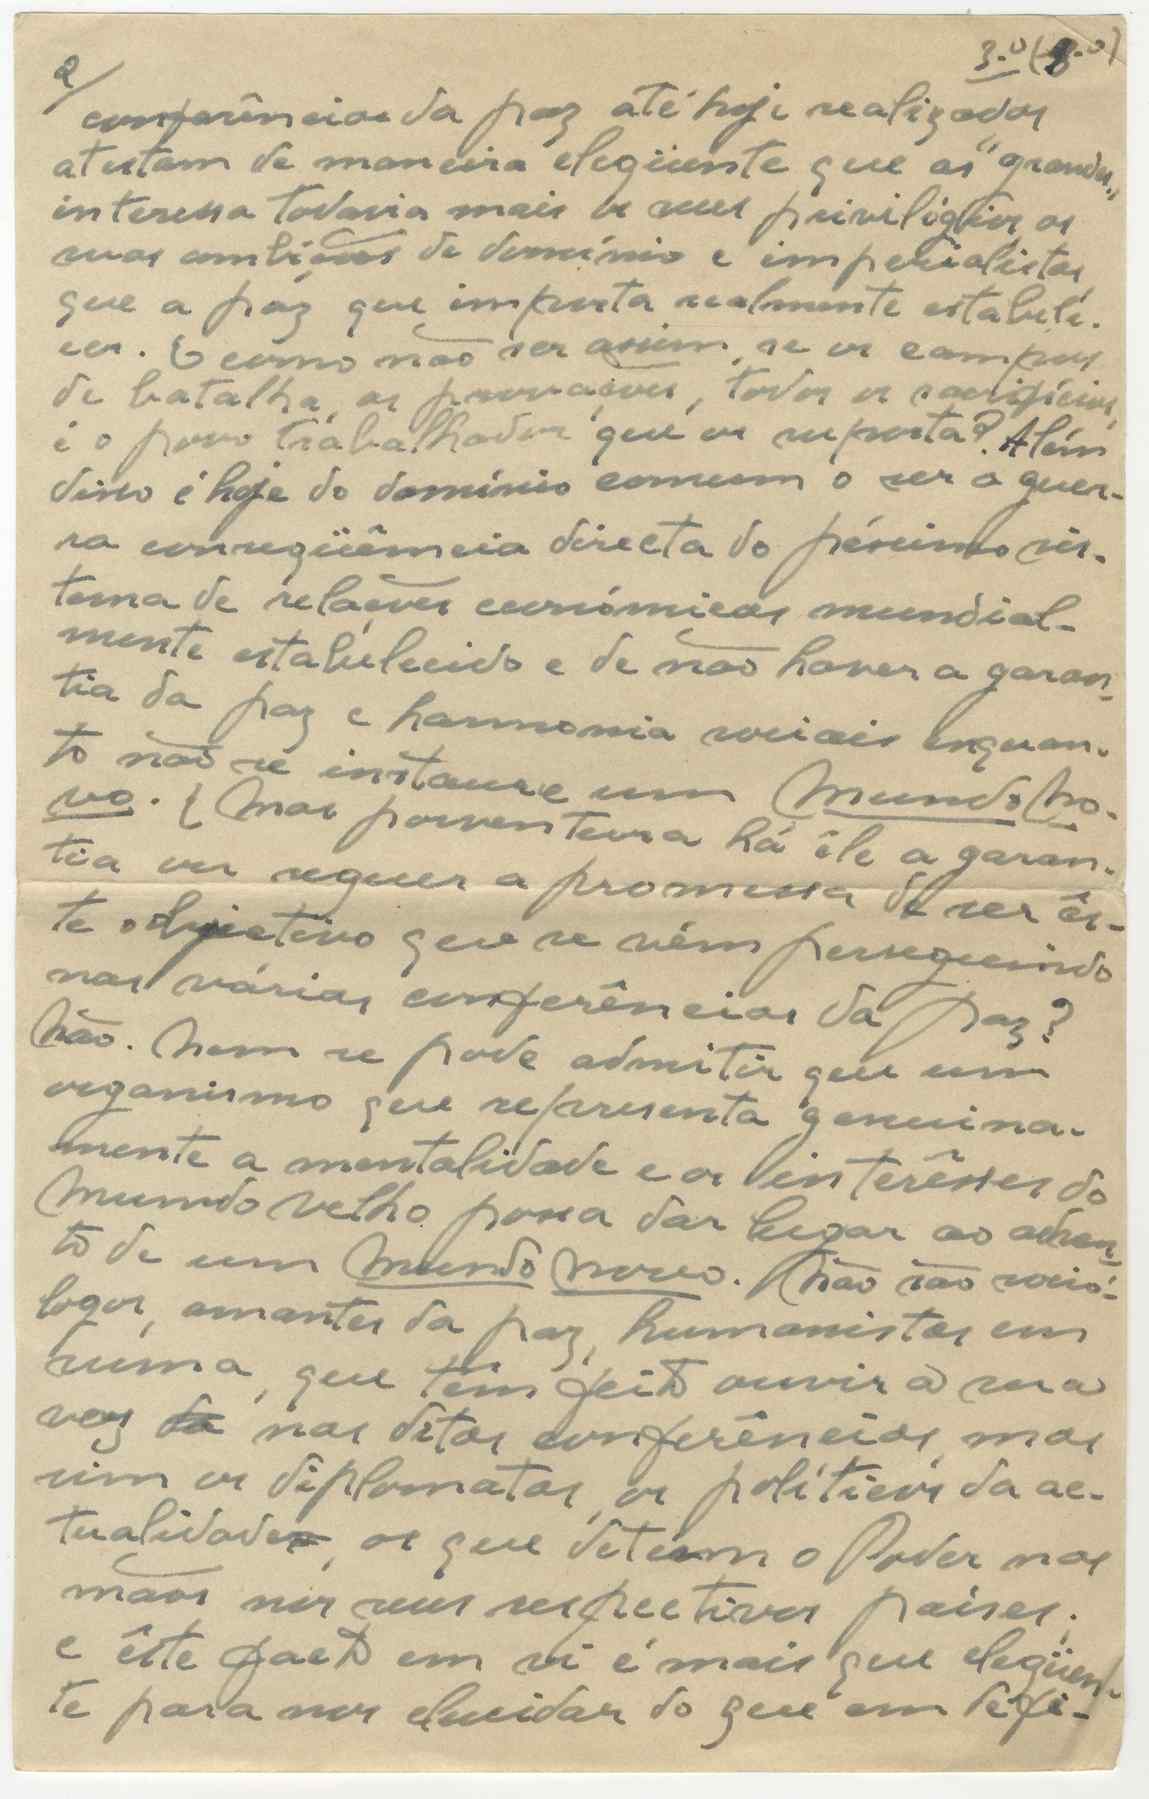 2/
3.º (8.º)
conferências da paz até hoje realizadas
atestam de maneira eleqüente que as "grandes"
interessa todavia mais os seus privilégios as
suas ambições de domínio e imperialistas
que a paz que importa realmente estabele-
cer. E como não ser assim, se os campos
de batalha, as provações, todos os sacrifícios,
é o povo trabalhador que os suporta? Além
disso é hoje do domínio comum o ser a guer-
ra conseqüência directa do péssimo sis-
tema de relações económicas mundial-
mente estabelecido e de não haver a garan-
tia da paz e harmonia sociais enquan-
to não se instaure um Mundo No-
vo. { Mas porventura há êle a garan-
tia ou sequer a promessa de ser ês-
te objectivo que se vêm perseguindo
nas várias conferências da paz?
Não. Nem se pode admitir que um
organismo que representa genuina-
mente a mentalidade e os interêsses do
Mundo velho possa dar lugar ao adven-
to de um Mundo novo. { Não são soció-
logos, amantes da paz, humanistas em
suma, que têm feito ouvir a sua
voz da nas ditas conferências, mas
sim os diplomatas, os políticos da ac-
tualidade, os que detêem o Poder nas
mãos nos seus respectivos países;
e êste facto em si é mais que eleqüen-
te para nos elucidar do que em defi-